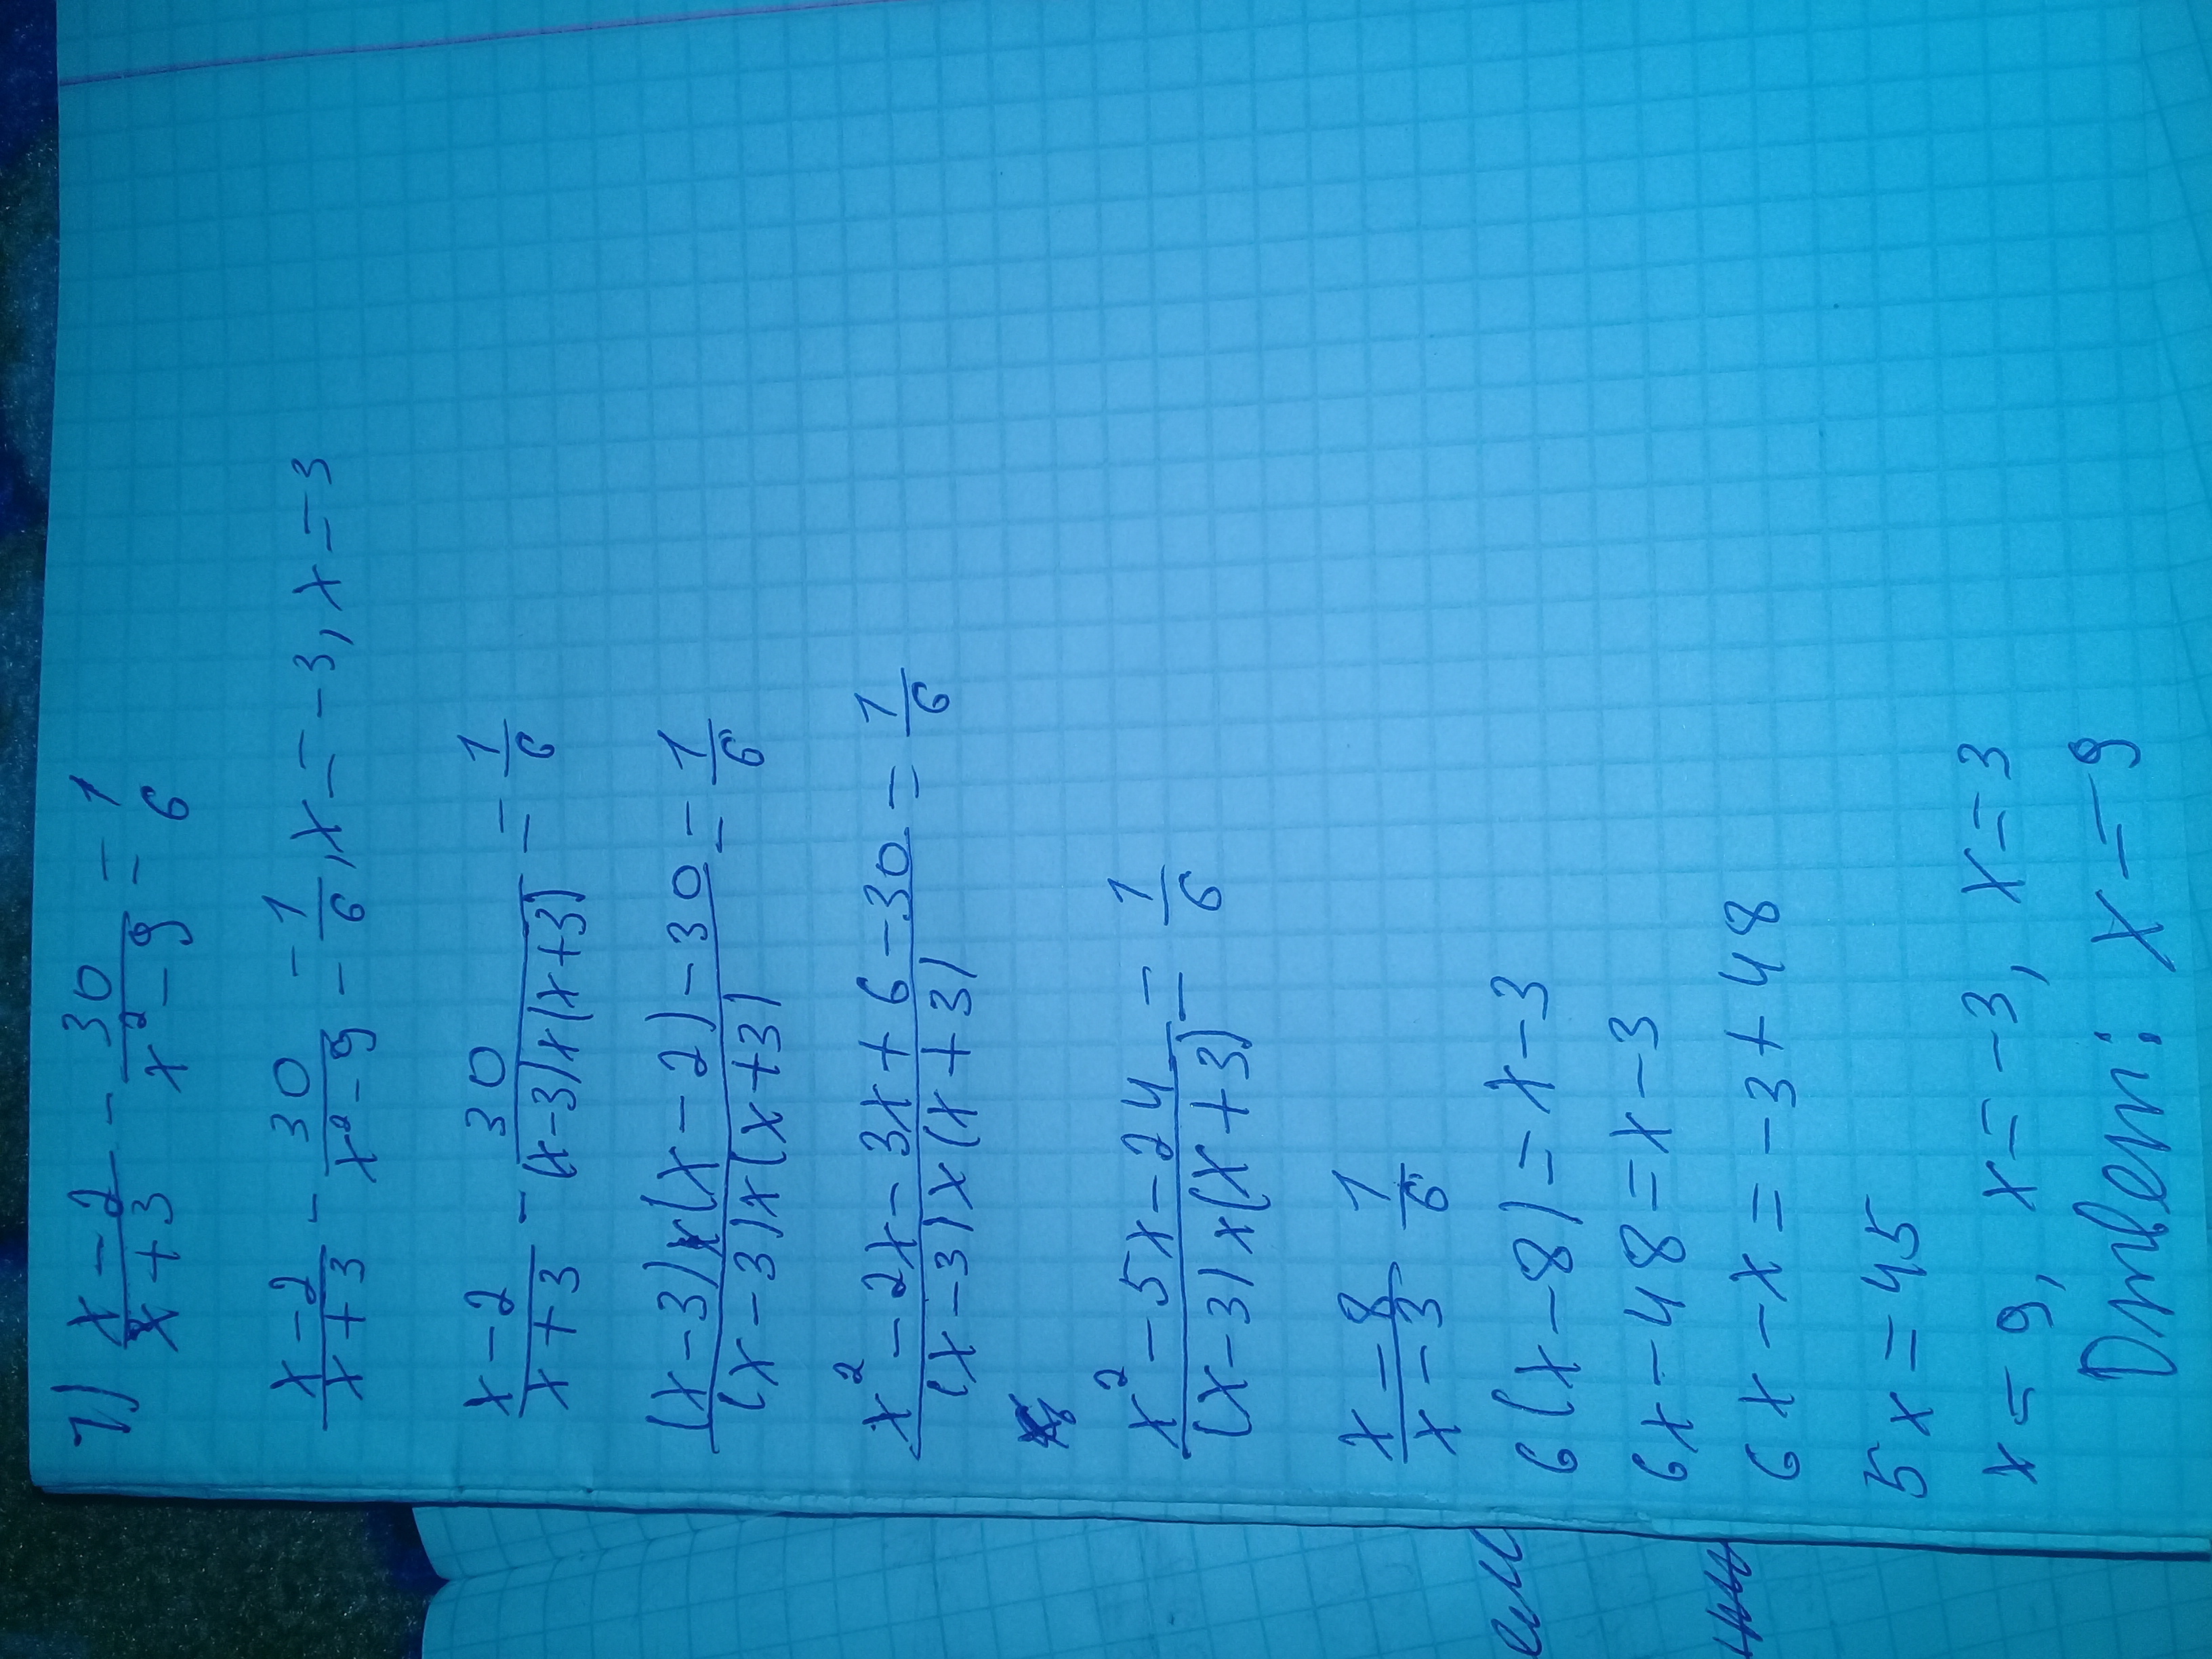 1) x-2/x+3 - 30/x²-9 = 1/6
x-2/x+3 - 30/x²-9 = 1/6, x = -3, x = 3
x-2/x+3 - 30/(x-3)x(x+3) = 1/6
(x-3)x(x-2)-30/(x-3)x(x+3) = 1/6
x²-2x-3x+6-30/(x-3)x(x+3) = 1/6
x²-5x-24/(x-3)x(x+3) = 1/6
x-8/x-3 1/6
6(x-8)=x-3
6x-48=x-3
6x-x=-3+48
5x=45
x=9, x=-3, x=3
Ответ: x=9